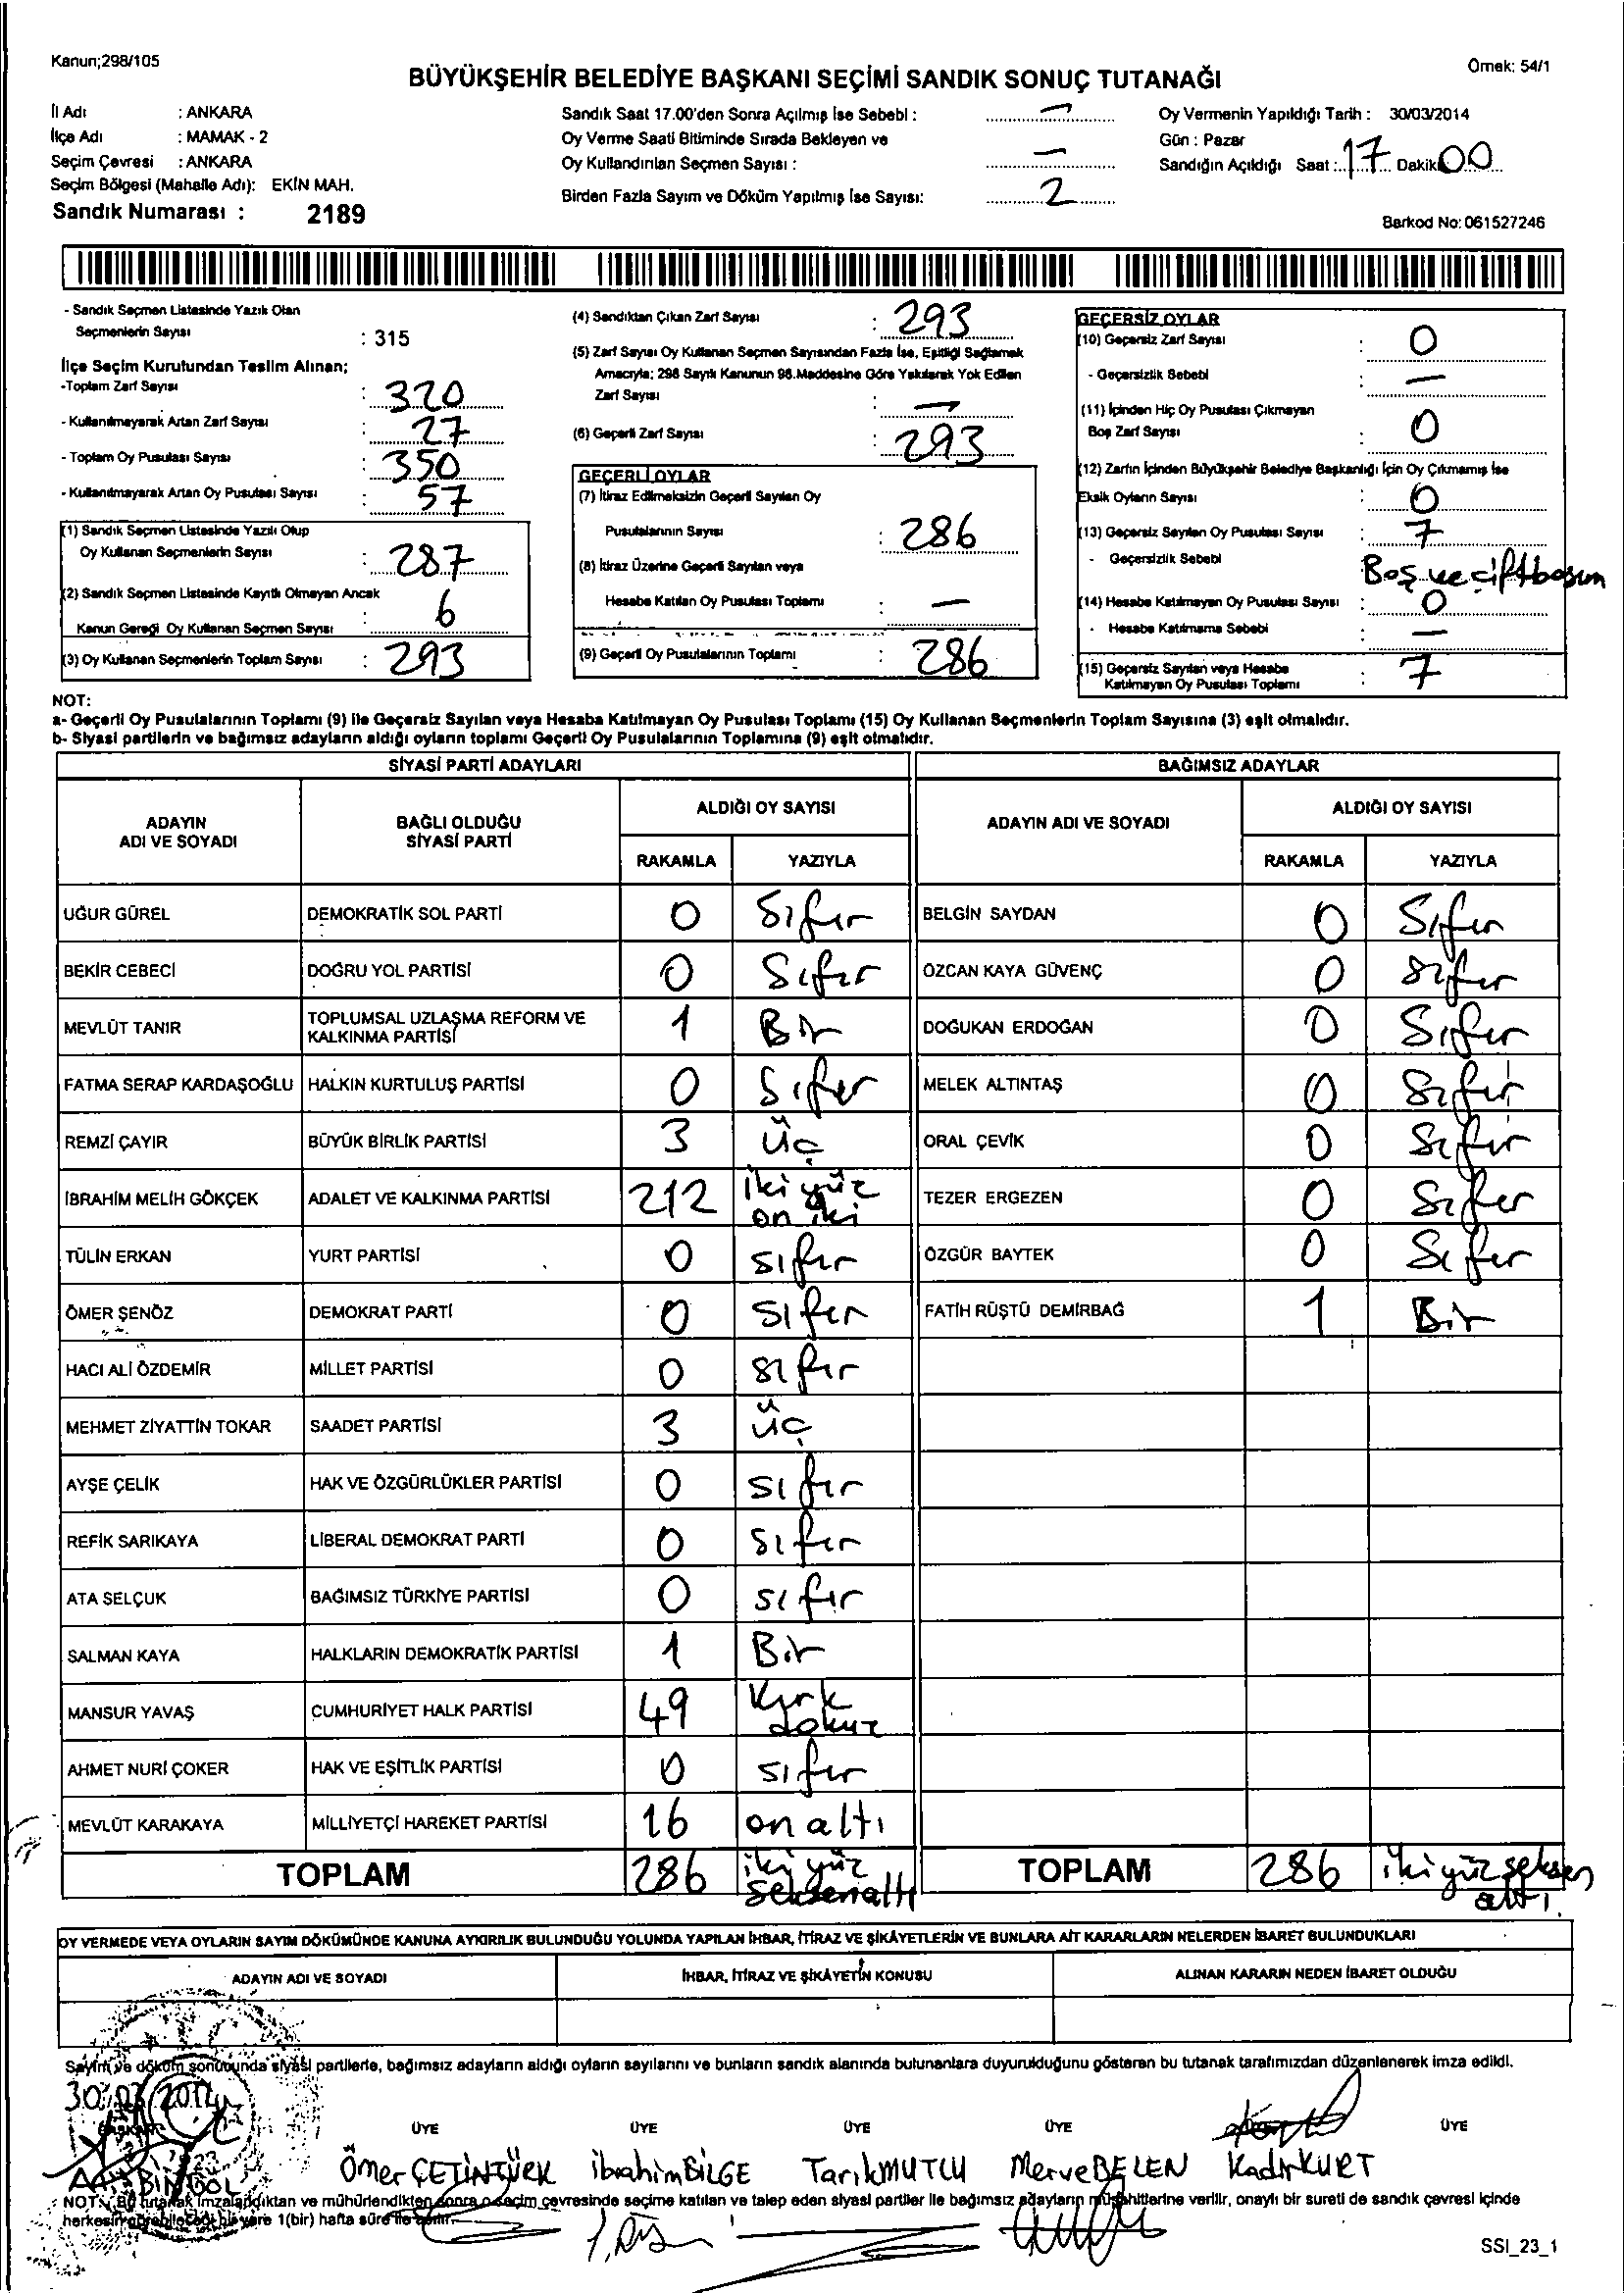 Kanun;298/105
Örnek: 54/1
BÜYÜKŞEHİR BELEDİYE BAŞKANI SEÇİMİ SANDIK SONUÇ TUTANAĞI
İl Adı : ANKARA
İlçe Adı : MAMAK - 2
Seçim Çevresi : ANKARA
Seçim Bölgesi (Mahalle Adı): EKİN MAH.
Sandık Numarası : 2189
Sandık Saat 17.00'den Sonra Açılmış İse Sebebi : —
Oy Verme Saati Bitiminde Sırada Bekleyen ve
Oy Kullandırılan Seçmen Sayısı : —
Birden Fazla Sayım ve Döküm Yapılmış İse Sayısı: 2
Oy Vermenin Yapıldığı Tarih : 30/03/2014
Gün : Pazar
Sandığın Açıldığı Saat : 17 Dakika 00
Barkod No: 061527246
- Sandık Seçmen Listesinde Yazılı Olan
Seçmenlerin Sayısı : 315
İlçe Seçim Kurulundan Teslim Alınan;
-Toplam Zarf Sayısı : 320
- Kullanılmayarak Artan Zarf Sayısı : 27
- Toplam Oy Pusulası Sayısı : 350
- Kullanılmayarak Artan Oy Pusulası Sayısı : 57
(1) Sandık Seçmen Listesinde Yazılı Olup
Oy Kullanan Seçmenlerin Sayısı : 287
(2) Sandık Seçmen Listesinde Kayıtlı Olmayan Ancak
Kanun Gereği Oy Kullanan Seçmen Sayısı : 6
(3) Oy Kullanan Seçmenlerin Toplam Sayısı : 293
(4) Sandıktan Çıkan Zarf Sayısı : 293
(5) Zarf Sayısı Oy Kullanan Seçmen Sayısından Fazla İse, Eşitliği Sağlamak
Amacıyla; 298 Sayılı Kanunun 98.Maddesine Göre Yakılarak Yok Edilen
Zarf Sayısı : —
(6) Geçerli Zarf Sayısı : 293
GEÇERLİ OYLAR
(7) İtiraz Edilmeksizin Geçerli Sayılan Oy
Pusulalarının Sayısı : 286
(8) İtiraz Üzerine Geçerli Sayılan veya
Hesaba Katılan Oy Pusulası Toplamı : —
(9) Geçerli Oy Pusulalarının Toplamı : 286
GEÇERSİZ OYLAR
(10) Geçersiz Zarf Sayısı : 0
- Geçersizlik Sebebi : —
(11) İçinden Hiç Oy Pusulası Çıkmayan
Boş Zarf Sayısı : 0
(12) Zarfın İçinden Büyükşehir Belediye Başkanlığı İçin Oy Çıkmamış İse
Eksik Oyların Sayısı : 0
(13) Geçersiz Sayılan Oy Pusulası Sayısı : 7
- Geçersizlik Sebebi Boş ve çift basım
(14) Hesaba Katılmayan Oy Pusulası Sayısı : 0
- Hesaba Katılmama Sebebi : —
(15) Geçersiz Sayılan veya Hesaba
Katılmayan Oy Pusulası Toplamı : 7
NOT:
a- Geçerli Oy Pusulalarının Toplamı (9) ile Geçersiz Sayılan veya Hesaba Katılmayan Oy Pusulası Toplamı (15) Oy Kullanan Seçmenlerin Toplam Sayısına (3) eşit olmalıdır.
b- Siyasi partilerin ve bağımsız adayların aldığı oyların toplamı Geçerli Oy Pusulalarının Toplamına (9) eşit olmalıdır.
SİYASİ PARTİ ADAYLARI BAĞIMSIZ ADAYLAR
ADAYIN
ADI VE SOYADI
BAĞLI OLDUĞU
SİYASİ PARTİ
ALDIĞI OY SAYISI
RAKAMLA YAZIYLA
ADAYIN ADI VE SOYADI
ALDIĞI OY SAYISI
RAKAMLA YAZIYLA
UĞUR GÜREL DEMOKRATİK SOL PARTİ 0 Sıfır BELGİN SAYDAN 0 Sıfır
BEKİR CEBECİ DOĞRU YOL PARTİSİ 0 Sıfır ÖZCAN KAYA GÜVENÇ 0 Sıfır
MEVLÜT TANIR TOPLUMSAL UZLAŞMA REFORM VE
KALKINMA PARTİSİ 1 Bir DOĞUKAN ERDOĞAN 0 Sıfır
FATMA SERAP KARDAŞOĞLU HALKIN KURTULUŞ PARTİSİ 0 Sıfır MELEK ALTINTAŞ 0 Sıfır
REMZİ ÇAYIR BÜYÜK BİRLİK PARTİSİ 3 üç ORAL ÇEVİK 0 Sıfır
İBRAHİM MELİH GÖKÇEK ADALET VE KALKINMA PARTİSİ 212 iki yüz
on iki TEZER ERGEZEN 0 Sıfır
TÜLİN ERKAN YURT PARTİSİ 0 sıfır ÖZGÜR BAYTEK 0 Sıfır
ÖMER ŞENÖZ DEMOKRAT PARTİ 0 sıfır FATİH RÜŞTÜ DEMİRBAĞ 1 Bir
HACI ALİ ÖZDEMİR MİLLET PARTİSİ 0 sıfır
MEHMET ZİYATTİN TOKAR SAADET PARTİSİ 3 üç
AYŞE ÇELİK HAK VE ÖZGÜRLÜKLER PARTİSİ 0 sıfır
REFİK SARIKAYA LİBERAL DEMOKRAT PARTİ 0 sıfır
ATA SELÇUK BAĞIMSIZ TÜRKİYE PARTİSİ 0 sıfır
SALMAN KAYA HALKLARIN DEMOKRATİK PARTİSİ 1 Bir
MANSUR YAVAŞ CUMHURİYET HALK PARTİSİ 49 Kırk
dokuz
AHMET NURİ ÇOKER HAK VE EŞİTLİK PARTİSİ 0 sıfır
MEVLÜT KARAKAYA MİLLİYETÇİ HAREKET PARTİSİ 16 on altı
TOPLAM 286 iki yüz
seksen altı TOPLAM 286 iki yüz seksen
altı.
OY VERMEDE VEYA OYLARIN SAYIM DÖKÜMÜNDE KANUNA AYKIRILIK BULUNDUĞU YOLUNDA YAPILAN İHBAR, İTİRAZ VE ŞİKÂYETLERİN VE BUNLARA AİT KARARLARIN NELERDEN İBARET BULUNDUKLARI
ADAYIN ADI VE SOYADI İHBAR, İTİRAZ VE ŞİKÂYETİN KONUSU ALINAN KARARIN NEDEN İBARET OLDUĞU
Sayım ve döküm sonucunda siyasi partilerle, bağımsız adayların aldığı oyların sayılarını ve bunların sandık alanında bulunanlara duyurulduğunu gösteren bu tutanak tarafımızdan düzenlenerek imza edildi.
30.03.2014
BAŞKAN ÜYE ÜYE ÜYE ÜYE ÜYE
BİNGÖL Ömer ÇETİNTÜRK İbrahim BİLGE Tarık MUTLU Merve BELEN Kadir KURT
NOT: Bu tutanak imzalandıktan ve mühürlendikten sonra o seçim çevresinde seçime katılan ve talep eden siyasi partiler ile bağımsız adayların müşahitlerine verilir, onaylı bir sureti de sandık çevresi içinde
herkesin görebileceği bir yere 1(bir) hafta süre ile asılır.
SSI_23_1